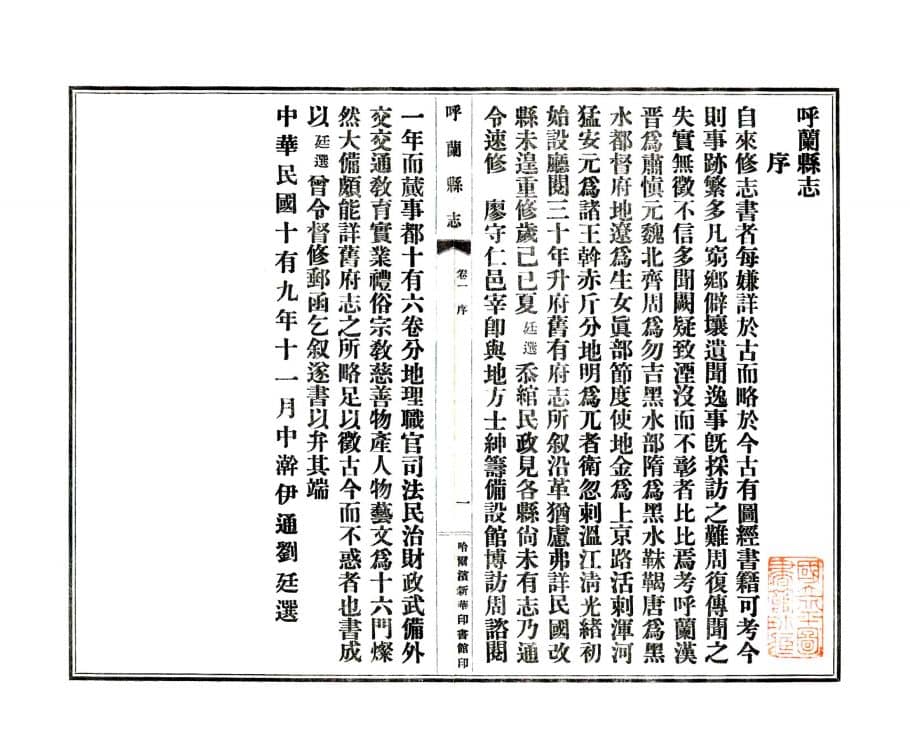 呼蘭縣志
序
自來修志書者每嫌詳於古而略於今古有圖經書籍可考今
則事跡繁多凡窮鄉僻壤遺聞逸事旣採訪之難周復傳聞之
失實無徵不信多聞闕疑致湮沒而不彰者比比焉考呼蘭漢
晉爲肅慎元魏北齊周爲勿吉黑水部隋爲黑水靺鞨唐爲黑
水都督府地遼爲生女眞部節度使地金爲上京路活剌渾河
猛安元爲諸王斡赤斤分地明爲兀者衛忽剌溫江淸光緒初
始設廳閱三十年升府舊有府志所叙沿革猶慮弗詳民國改
縣未遑重修歲己巳夏廷選忝綰民政見各縣尙未有志乃通
令速修　廖守仁邑宰卽與地方士紳籌備設館博訪周諮閱
呼蘭縣志
卷一　序
一
哈爾濱新華印書館印
一年而蕆事都十有六卷分地理職官司法民治財政武備外
交交通敎育實業禮俗宗敎慈善物產人物藝文爲十六門燦
然大備頗能詳舊府志之所略足以徵古今而不惑者也書成
以廷選曾令督修郵函乞叙遂書以弁其端
中華民國十有九年十一月中澣伊通劉廷選